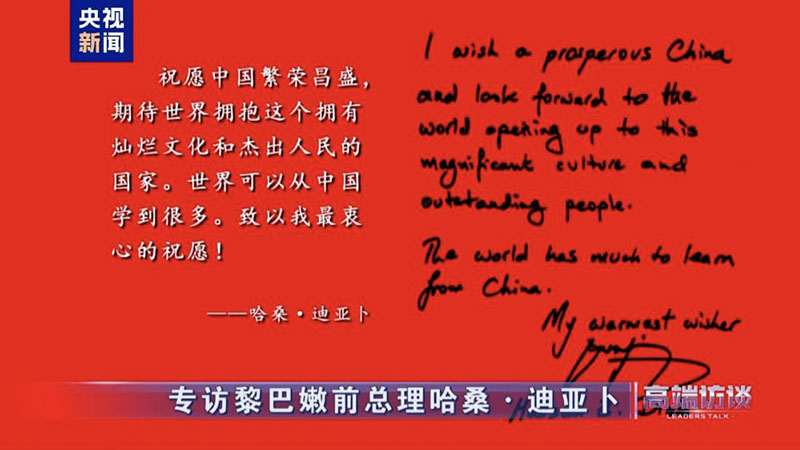 央视
新闻
祝愿中国繁荣昌盛，
期待世界拥抱这个拥有
灿烂文化和杰出人民的
国家。世界可以从中国
学到很多。致以我最衷
心的祝愿！
——哈桑·迪亚卜
I wish a prosperous China
and look forward to the
world opening up to this
magnificant culture and
outstanding people.
The world has much to learn
from China.
My warmest wishes
专访黎巴嫩前总理哈桑·迪亚卜
高端访谈
LEADERS TALK